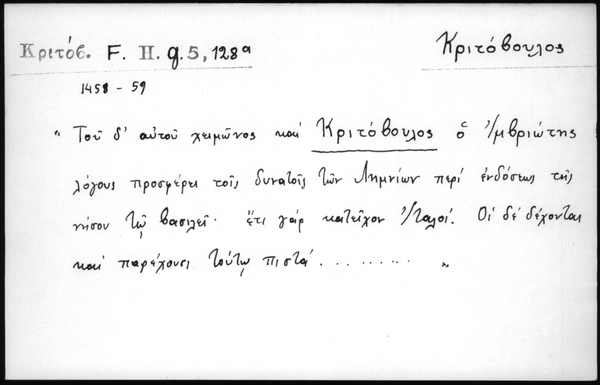 Κριτόβ. F. II. g. 5, 128ª Κριτόβουλος
1458 - 59
" Τοῦ δ' αὐτοῦ χειμῶνος καί Κριτόβουλος ὁ Ἰμβριώτης
λόγους προσφέρει τοῖς δυνατοῖς τῶν Λημνίων περί ἐνδόσεως τῆς
νήσου τῷ βασιλεῖ· ἔτι γάρ κατεῖχον Ἰταλοί. Οἱ δέ δέχονται
καί παρέχουσι τούτῳ πιστά . . . . . . . . . . "